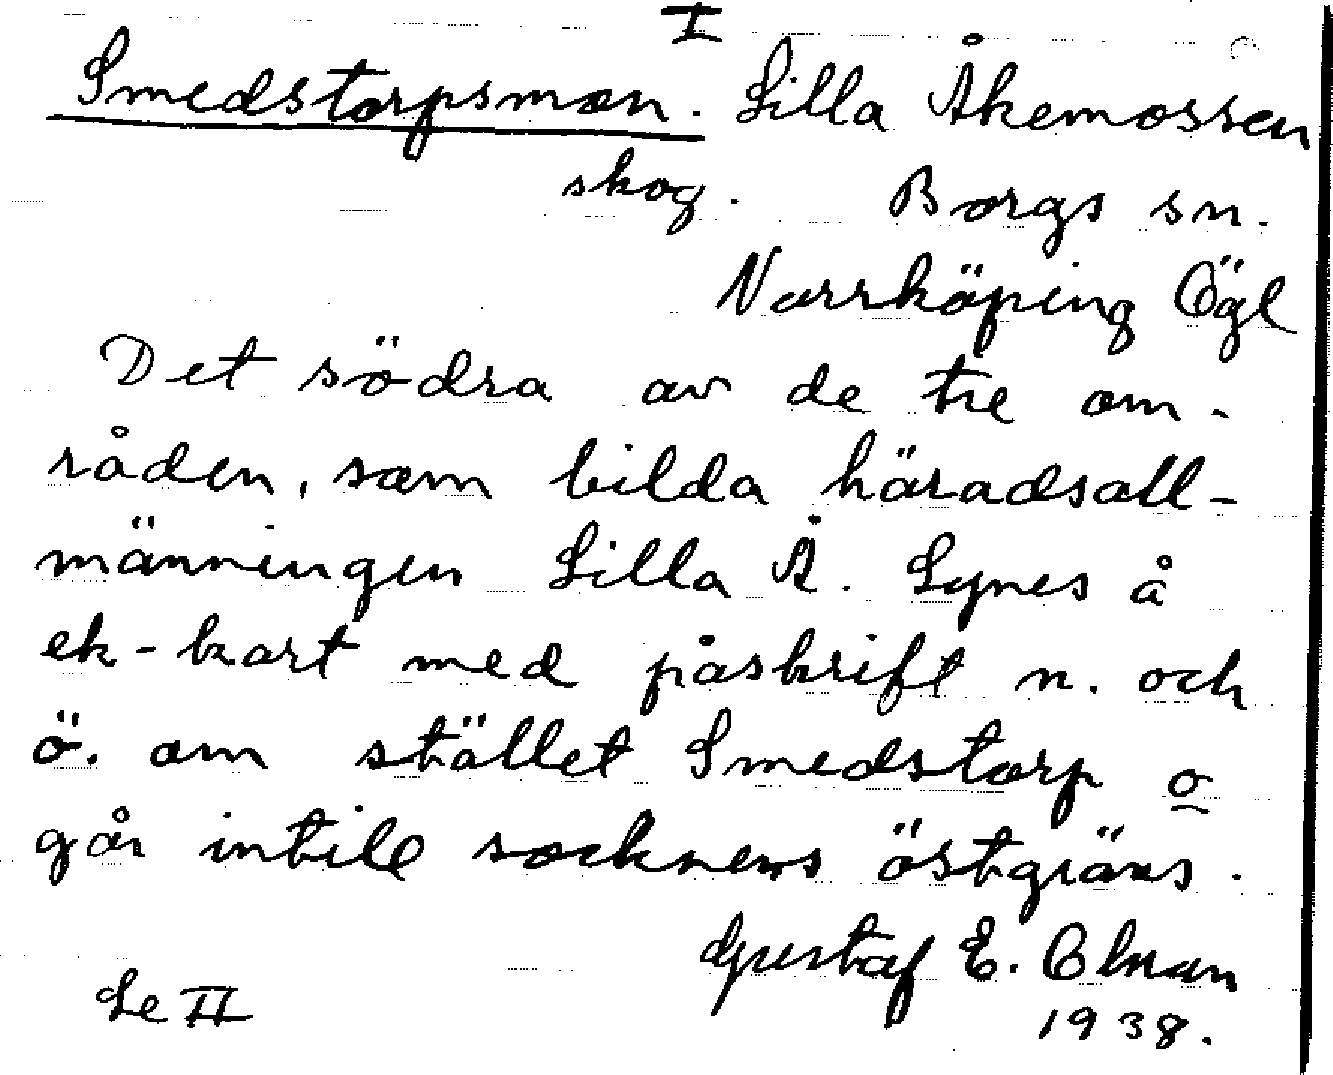 I
Smedstorpsmon. Lilla Åkemossen
skog. Borgs sn.
Norrköping Ögl
Det södra av de tre om-
råden, som bilda häradsall-
männingen Lilla Å. Synes å
ek-kart med påskrift n. och
ö. om stället Smedstorp o
går intill socknens östgräns.
Gustaf E. Olman
1938.
Se II